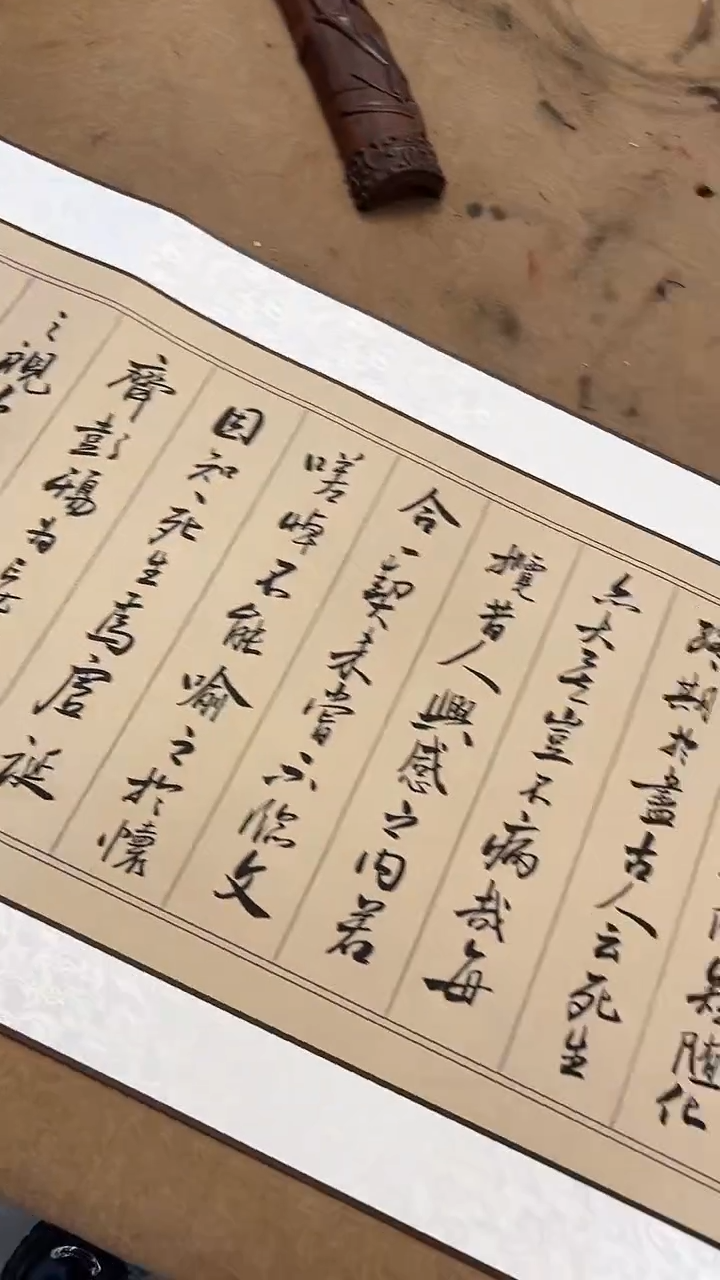 短隨化
終期於盡古人云死生
亦大矣豈不痛哉每
攬昔人興感之由若
合一契未嘗不臨文
嗟悼不能喻之於懷
固知一死生為虛誕
齊彭殤為妄
之視